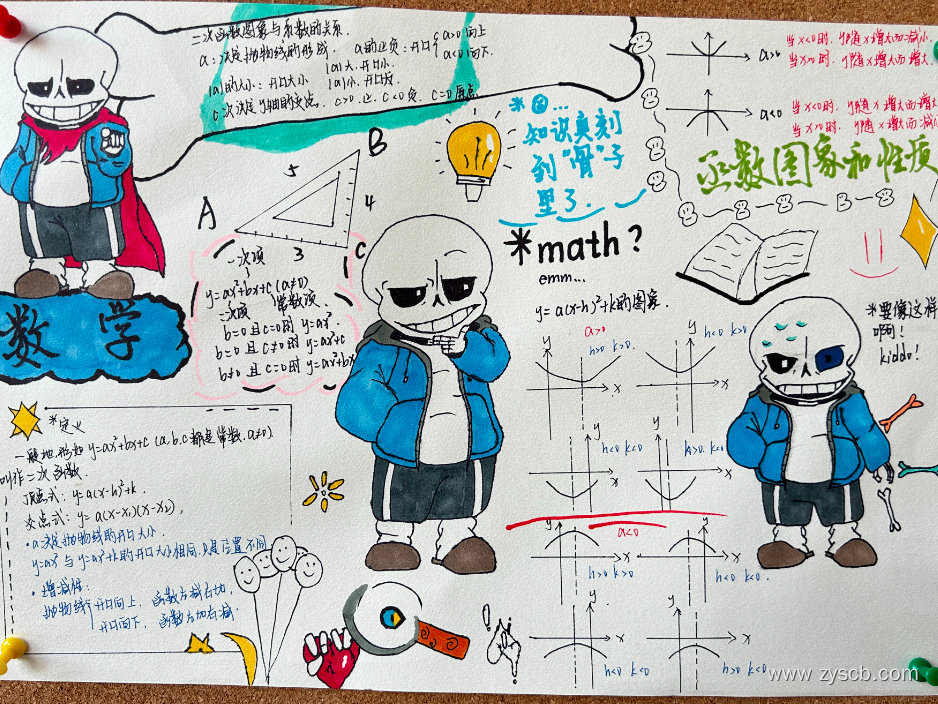 二次函数图象与系数的关系.
a：决定抛物线的形状. a的正负：开口 a>0 向上
a<0 向下.
|a|的大小：开口大小 |a|大，开口小.
|a|小，开口大
c：决定y轴的交点. c>0 正，c<0 负，c=0 原点
a>0
当x<0时，y随x增大而减小.
当x>0时，y随x增大而增大.
a<0
当x<0时，y随x增大而增大
当x>0时，y随x增大而减小
函数图象和性质
知识真刻
到“骨”子
里了.
B
5
4
A
C
3
*math?
emm...
一次项
y=ax²+bx+c (a≠0)
二次项 常数项.
b=0且c=0时 y=ax².
b=0 且 c≠0时 y=ax²+c
b≠0 且 c=0时 y=ax²+bx
数学
y=a(x-h)²+k的图象.
a>0
y
h>0 k>0.
x
y
h<0 k>0.
x
y
h<0 k<0
x
y
h>0 k<0
x
a<0
y
h>0 k>0
x
y
h<0 k>0.
x
y
h<0 k<0
x
y
h>0 k<0
x
*要像这样
啊!
kiddo!
*定义
一般地，形如 y=ax²+bx+c (a,b,c都是常数，a≠0)
叫作二次函数.
顶点式：y=a(x-h)²+k.
交点式：y=a(x-x₁)(x-x₂),
·a决定抛物线的开口大小.
y=ax² 与 y=ax²+k的开口大小相同，只是位置不同
·增减性：
抛物线 开口向上，函数左减右加，
开口向下，函数左加右减.
www.zyscb.com